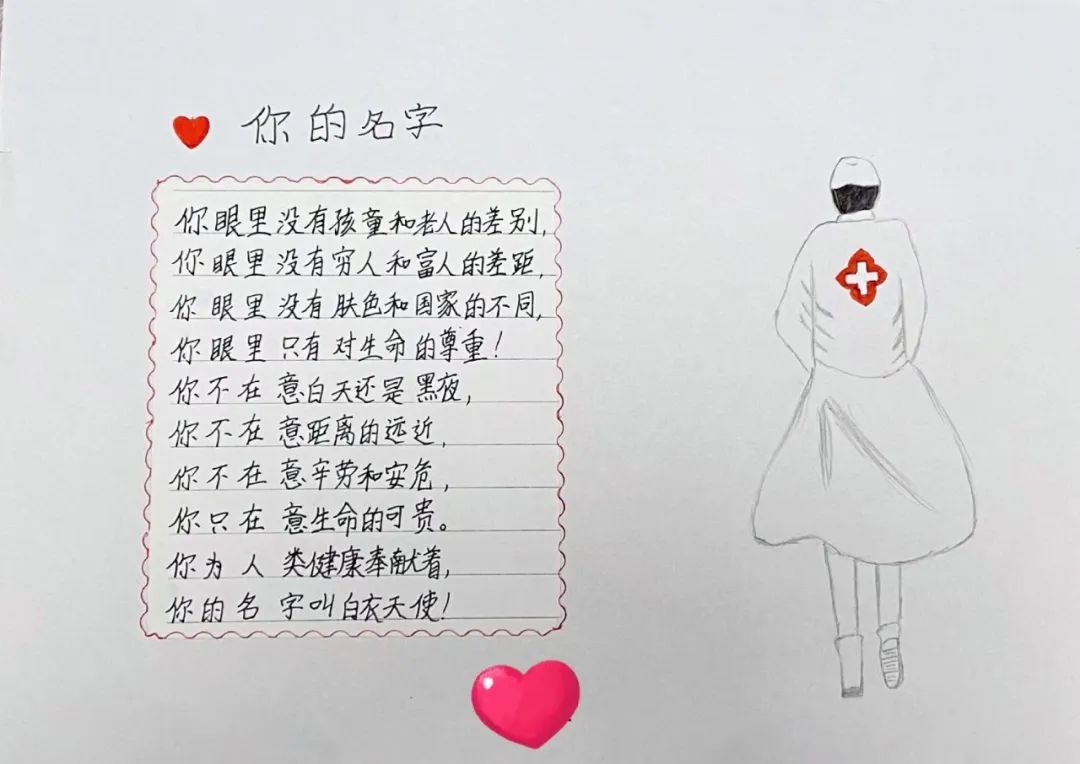 你的名字
你眼里没有孩童和老人的差别,
你眼里没有穷人和富人的差距,
你眼里没有肤色和国家的不同,
你眼里只有对生命的尊重!
你不在意白天还是黑夜,
你不在意距离的远近,
你不在意辛劳和安危,
你只在意生命的可贵。
你为人类健康奉献着,
你的名字叫白衣天使!